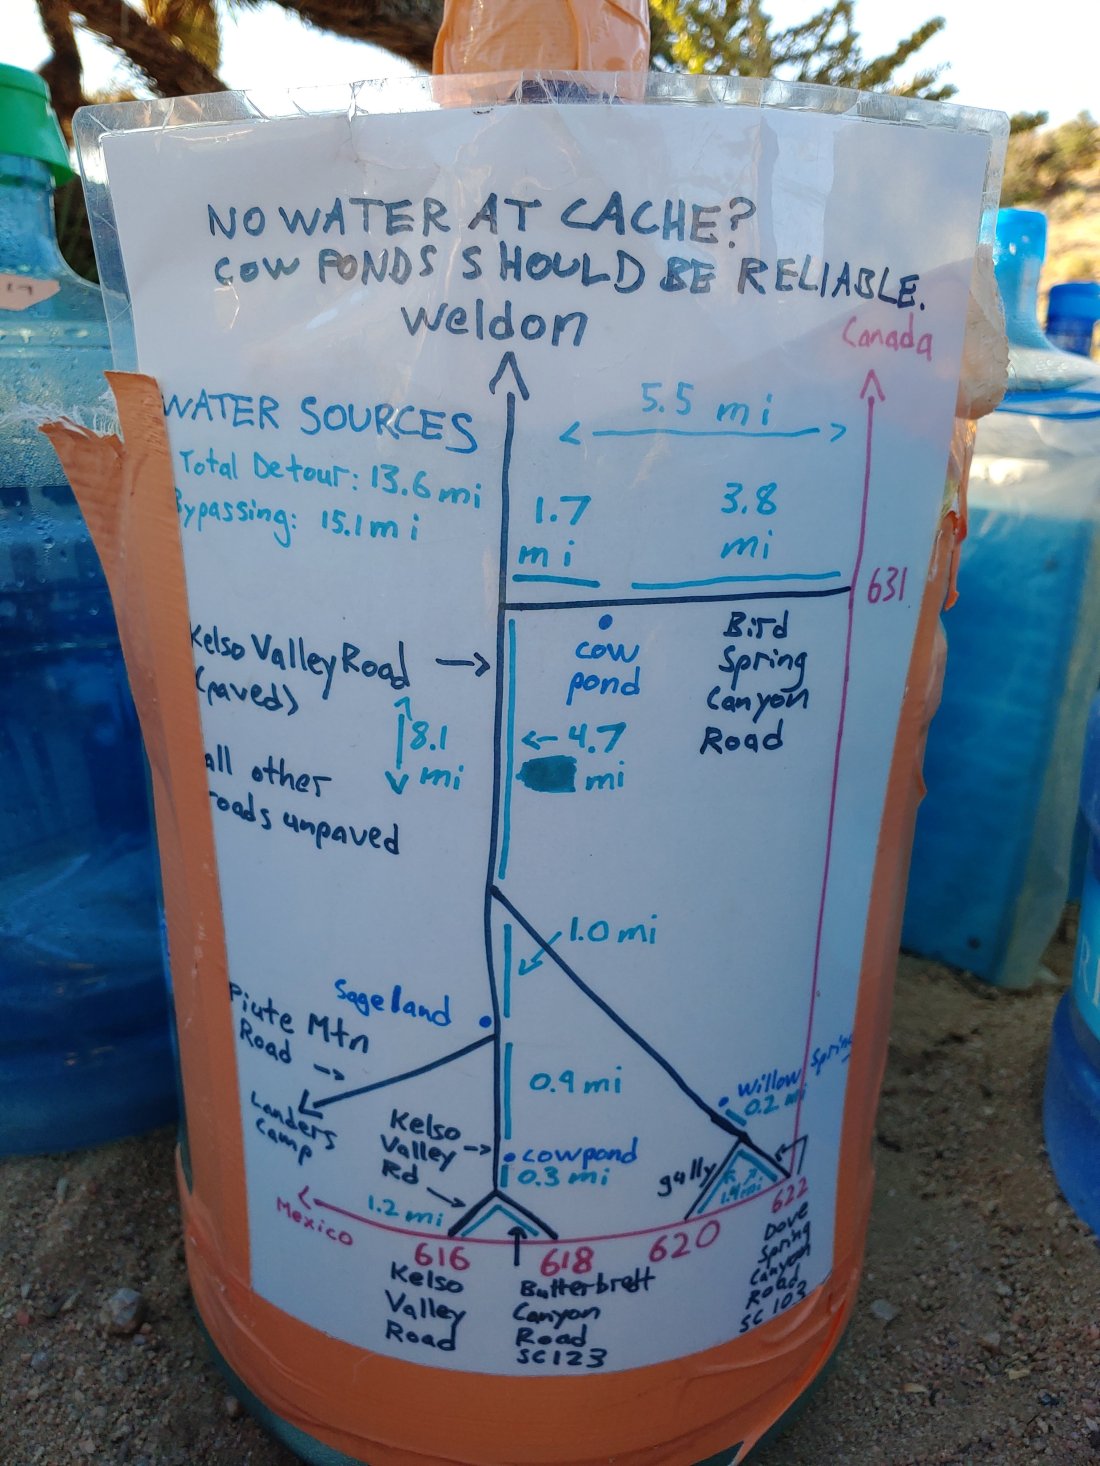 NO WATER AT CACHE?
COW PONDS SHOULD BE RELIABLE.
Weldon
Canada
WATER SOURCES
Total Detour: 13.6 mi
Bypassing: 15.1 mi
5.5 mi
1.7
mi
3.8
mi
631
Kelso Valley Road
(paved)
8.1
mi
all other
roads unpaved
cow
pond
Bird
Spring
Canyon
Road
4.7
mi
1.0 mi
Sageland
Piute Mtn
Road
Landers
Camp
0.9 mi
Willow Spring
0.2 mi
Kelso
Valley
Rd
cow pond
0.3 mi
gully
1.4 mi
1.2 mi
Mexico
616
618
620
622
Kelso
Valley
Road
Butterbrett
Canyon
Road
SC123
Dove
Spring
Canyon
Road
SC 103